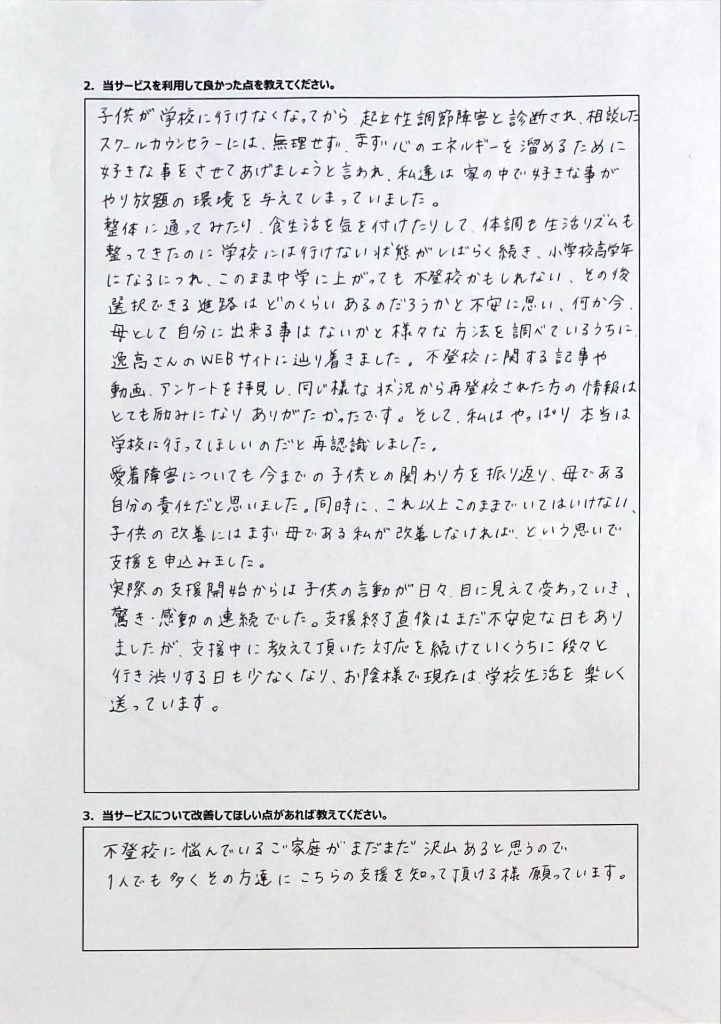 2．当サービスを利用して良かった点を教えてください。
子供が学校に行けなくなってから、起立性調節障害と診断され、相談した
スクールカウンセラーには、無理せず、まず心のエネルギーを溜めるために
好きな事をさせてあげましょうと言われ、私達は家の中で好きな事が
やり放題の環境を与えてしまっていました。
整体に通ってみたり、食生活を気を付けたりして、体調も生活リズムも
整ってきたのに学校には行けない状態がしばらく続き、小学校高学年
になるにつれ、このまま中学に上がっても不登校かもしれない、その後
選択できる進路はどのくらいあるのだろうかと不安に思い、何か今、
母として自分に出来る事はないかと様々な方法を調べているうちに、
逸高さんのWEBサイトに辿り着きました。不登校に関する記事や
動画、アンケートを拝見し、同じ様な状況から再登校された方の情報は
とても励みになりありがたかったです。そして、私はやっぱり本当は
学校に行ってほしいのだと再認識しました。
愛着障害についても今までの子供との関わり方を振り返り、母である
自分の責任だと思いました。同時に、これ以上このままでいてはいけない、
子供の改善にはまず母である私が改善しなければ、という思いで
支援を申込みました。
実際の支援開始からは子供の言動が日々、目に見えて変わっていき、
驚き・感動の連続でした。支援終了直後はまだ不安定な日もあり
ましたが、支援中に教えて頂いた対応を続けていくうちに段々と
行き渋りする日も少なくなり、お陰様で現在は、学校生活を楽しく
送っています。
3．当サービスについて改善してほしい点があれば教えてください。
不登校に悩んでいるご家庭がまだまだ沢山あると思うので
1人でも多くその方達にこちらの支援を知って頂ける様願っています。